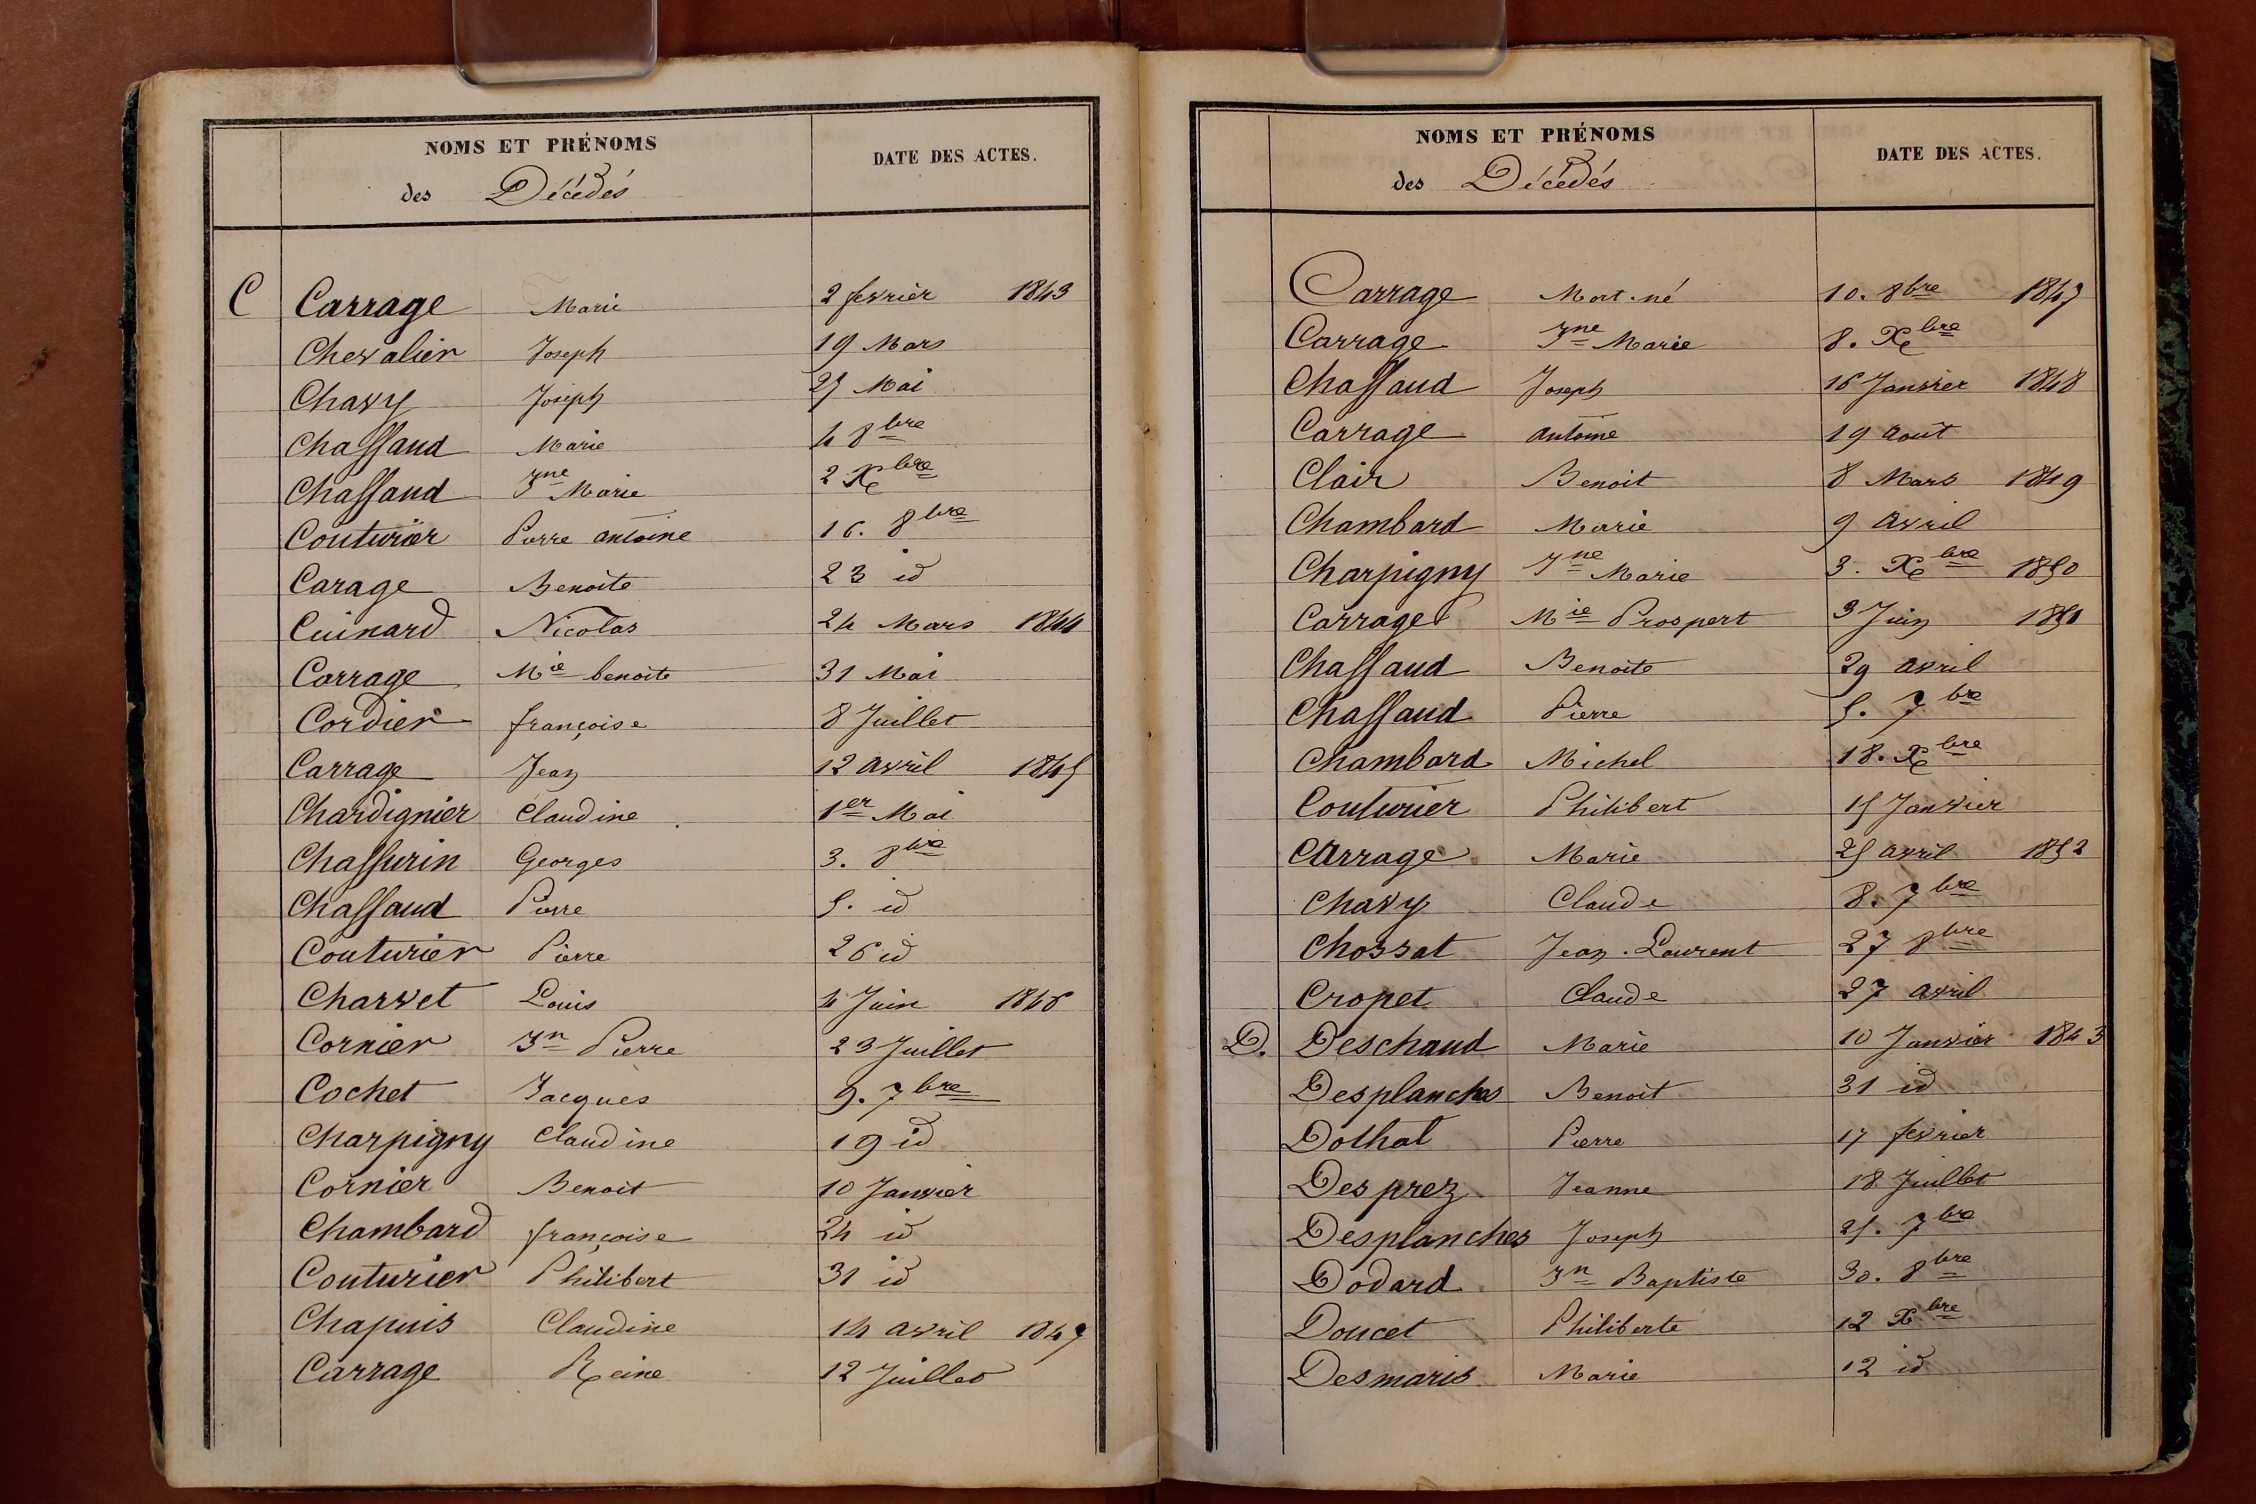 NOMS ET PRÉNOMS
des Décédés
DATE DES ACTES.
C Carrage Marie 2 fevrier 1843
Chevalier Joseph 19 Mars
Chavy Joseph 25 Mai
Chaffaud Marie 4 8bre
Chaffaud Jne Marie 2 Xbre
Couturier Pierre antoine 16. 8bre
Carage Benoite 23 id
Cuinard Nicolas 24 Mars 1844
Carrage Mie benoite 31 Mai
Cordier françoise 8 Juillet
Carrage Jean 12 avril 1845
Chardignier Claudine 1er Mai
Chaffurin Georges 3. 8bre
Chaffaud Pierre 5. id
Couturier Pierre 26 id
Charvet Louis 4 Juin 1846
Cornier Jn Pierre 23 Juillet
Cochet Jacques 9. 7bre
Charpigny Claudine 19 id
Cornier Benoit 10 Janvier
Chambard françoise 24 id
Couturier Philibert 31 id
Chapuis Claudine 14 avril 1847
Carrage Reine 12 Juillet
NOMS ET PRÉNOMS
des Décédés
DATE DES ACTES.
Carrage Mort-né 10. 8bre 1847
Carrage Jne Marie 8. Xbre
Chaffaud Joseph 16 Janvier 1848
Carrage antoine 19 août
Clair Benoit 8 Mars 1849
Chambard Marie 9 avril
Charpigny Jne Marie 3. Xbre 1850
Carrage Mie Prospert 3 Juin 1851
Chaffaud Benoite 29 avril
Chaffaud Pierre 5. 7bre
Chambard Michel 18. Xbre
Couturier Philibert 15 Janvier
Carrage Marie 25 avril 1852
Chavy Claude 8. 7bre
Chossat Jean-Laurent 27 8bre
Cropet Claude 27 avril
D. Deschaud Marie 10 Janvier 1843
Desplanches Benoit 31 id
Dothal Pierre 17 fevrier
Desprez Jeanne 18 Juillet
Desplanches Joseph 25. 7bre
Dodard Jn Baptiste 30. 8bre
Doucet Philiberte 12 Xbre
Desmaris Marie 12 id